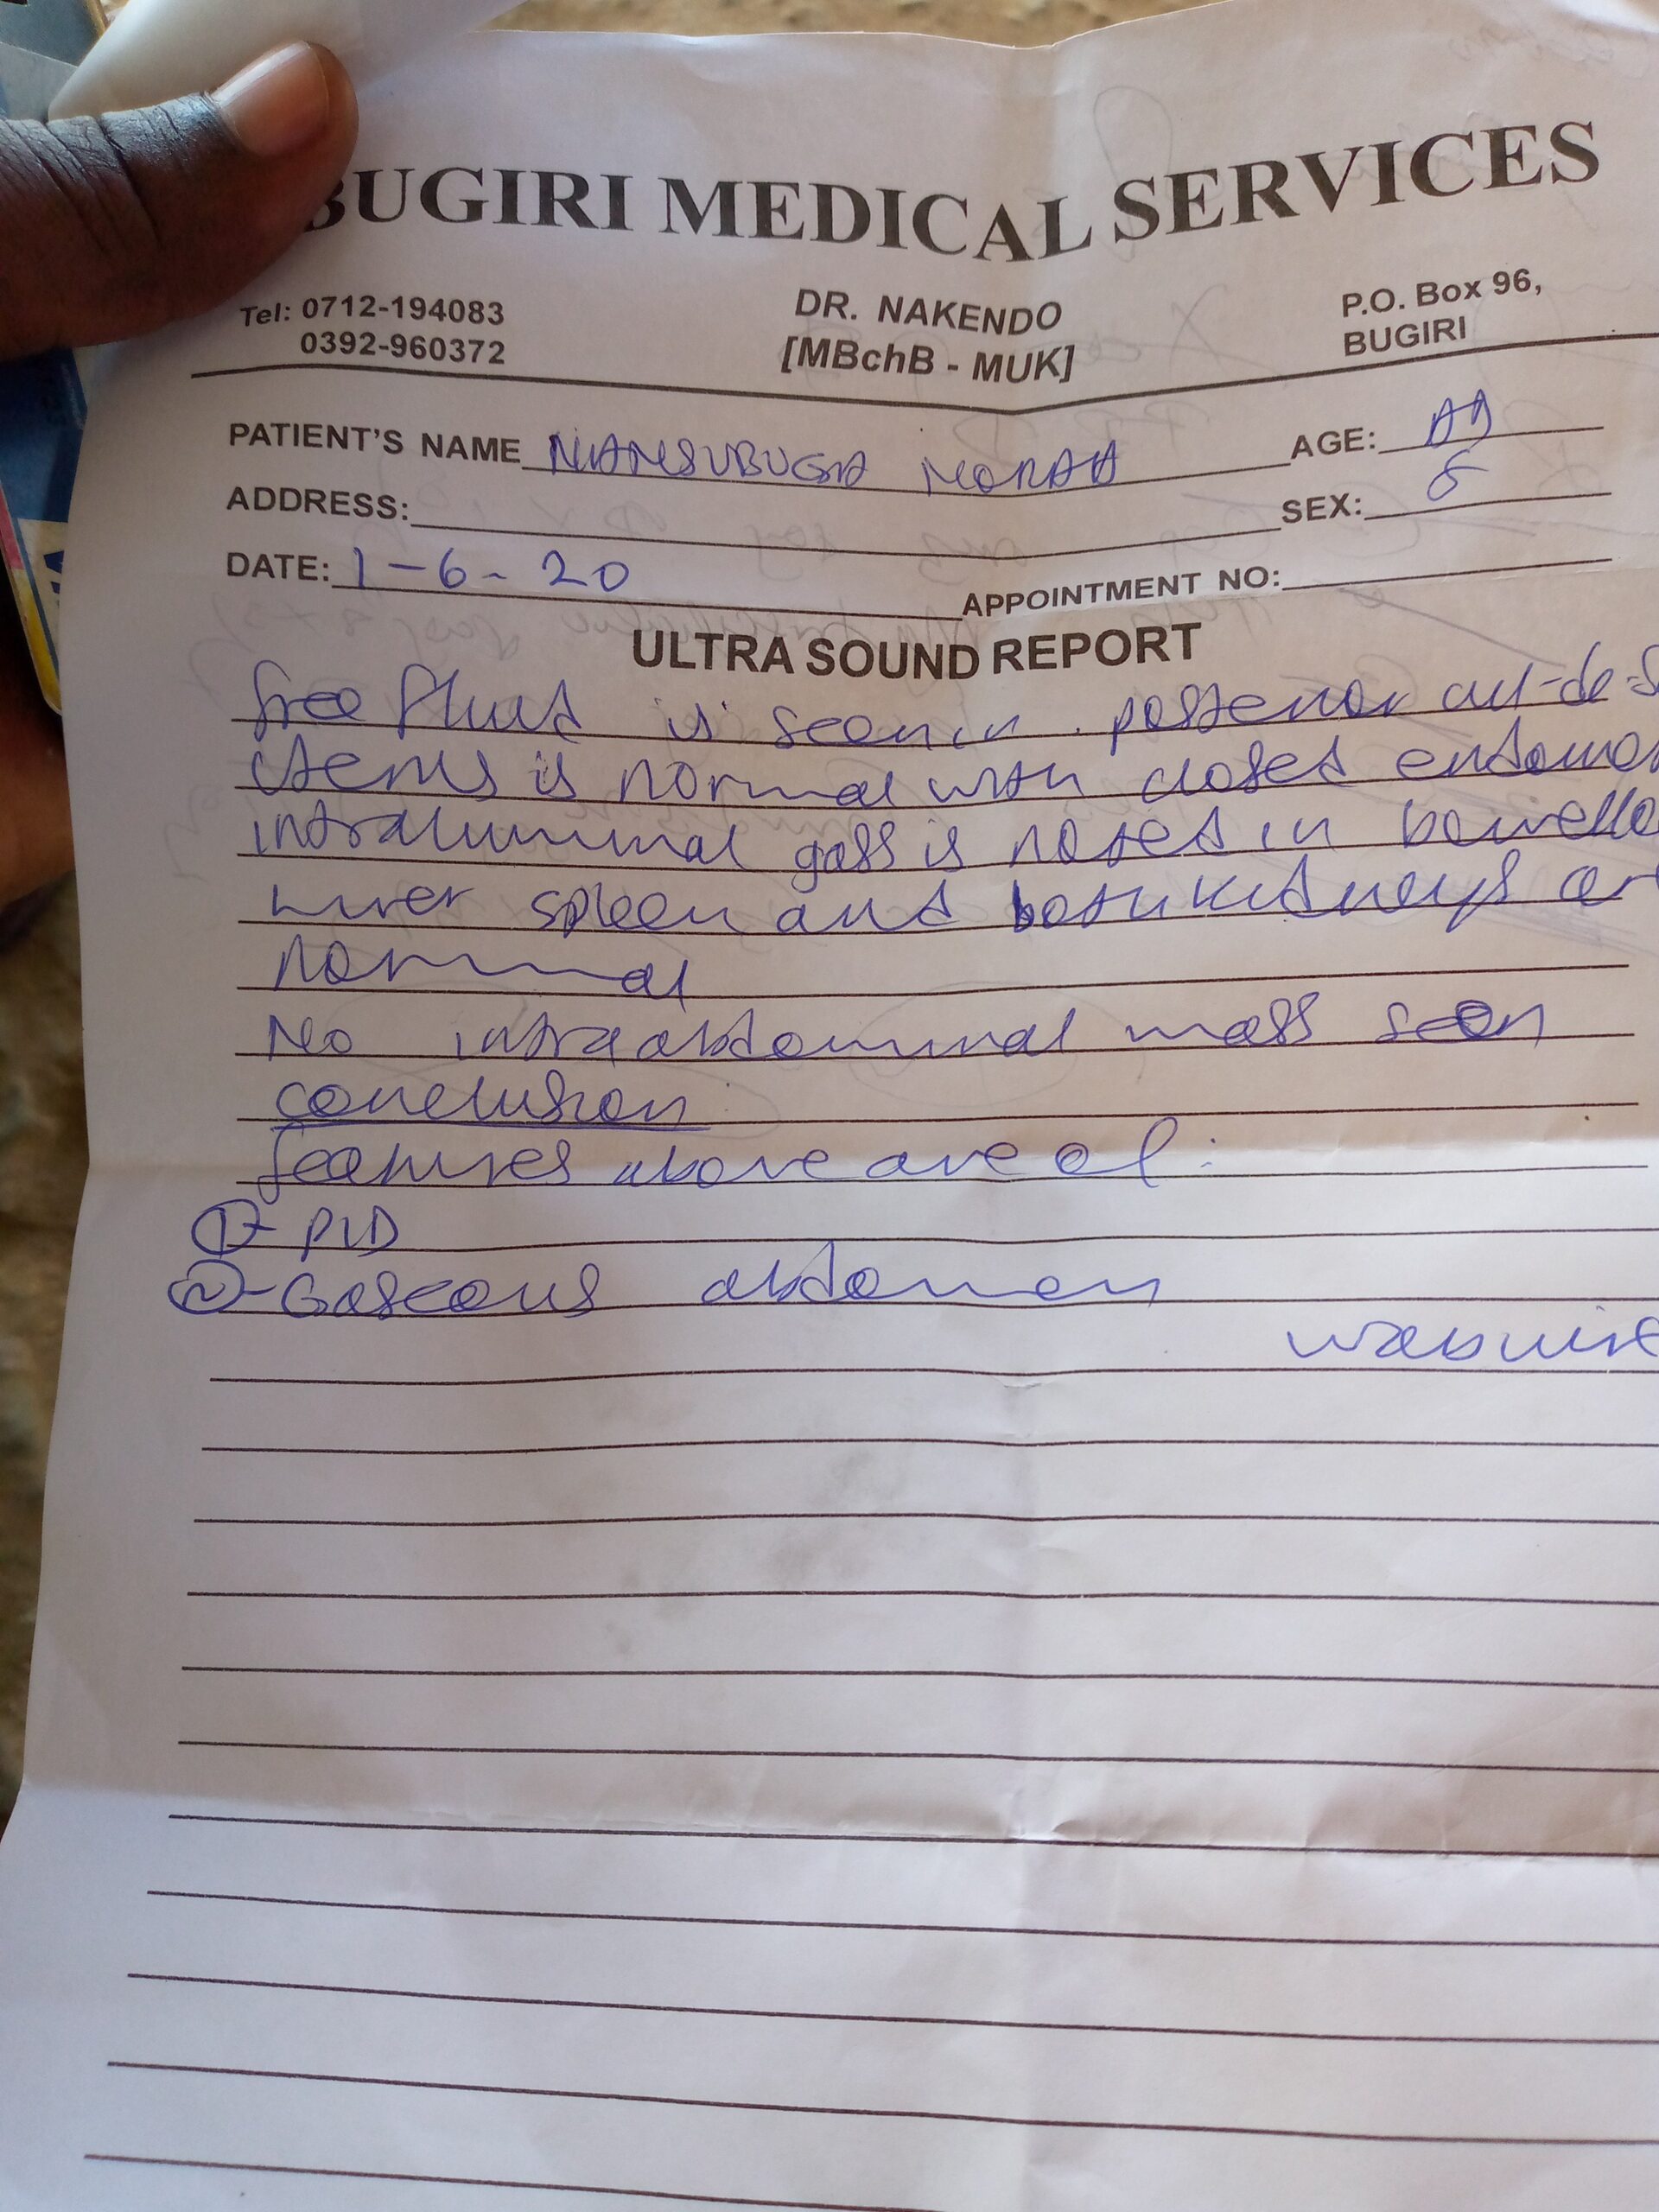 BUGIRI MEDICAL SERVICES
Tel: 0712-194083
0392-960372
DR. NAKENDO
[MBchB - MUK]
P.O. Box 96,
BUGIRI
PATIENT'S NAME NANSUBUGA NORAH AGE: AD
ADDRESS: SEX: F
DATE: 1-6-20 APPOINTMENT NO:
ULTRA SOUND REPORT
free fluid is seen in posterior cul-de-s
uterus is normal with closed endome
intraluminal gass is noted in bowello
Liver spleen and both kidneys ar
normal
No intraabdominal mass seen
conclusion
features above are of:
① - PID
② - Gaseous abdomen